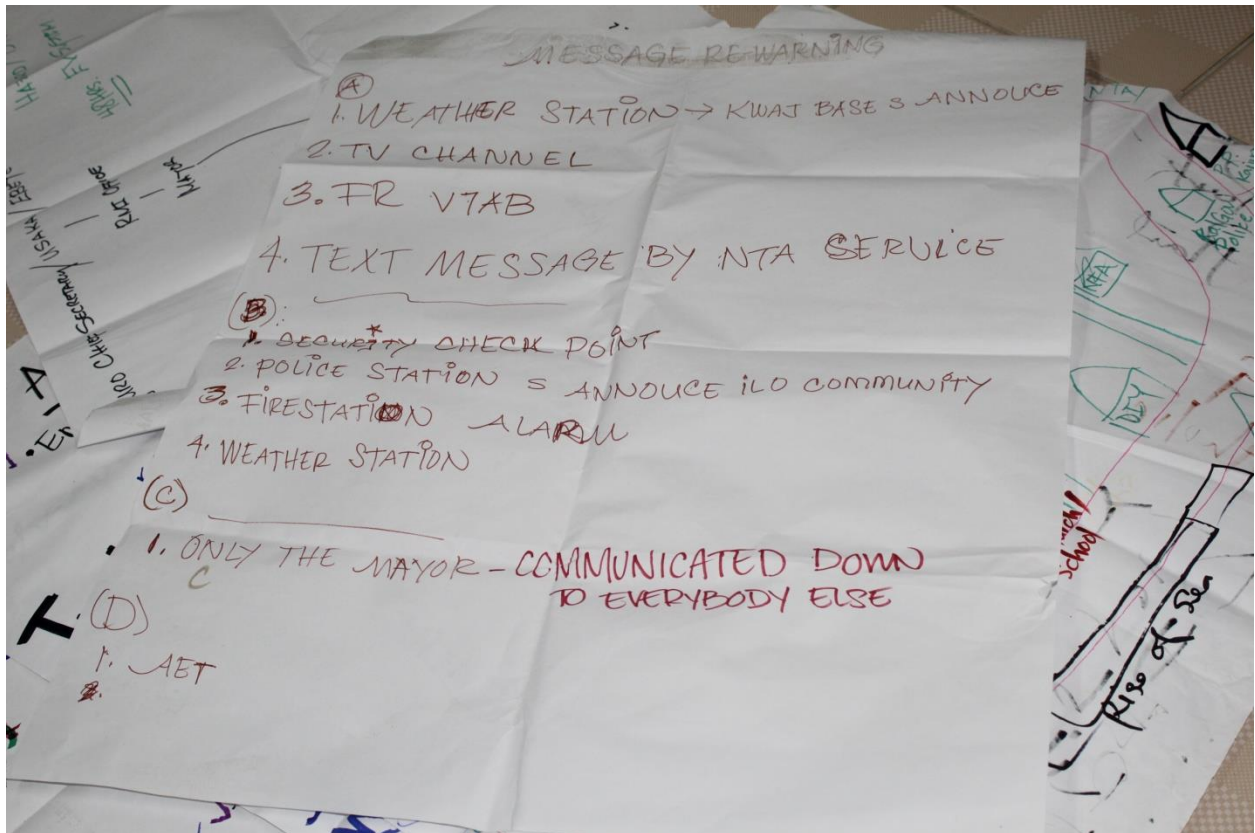 MESSAGE RE WARNING
(A)
1. WEATHER STATION → KWAJ BASE S ANNOUCE
2. TV CHANNEL
3. FR V7AB
4. TEXT MESSAGE BY NTA SERVICE
(B):
1. SECURITY CHECK POINT
2. POLICE STATION S ANNOUCE ILO COMMUNITY
3. FIRESTATION ALARM
4. WEATHER STATION
(C)
1. ONLY THE MAYOR - COMMUNICATED DOWN
TO EVERYBODY ELSE
C
(D)
1. AET
2.
48HRS.
RMI OFFICE
MAYOR
CHIEF SECRETARY / USAKA /
NTA
School
Rise of Sea